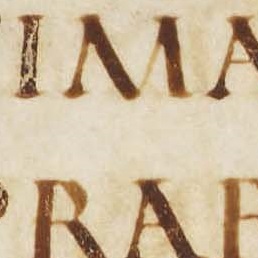 IMA
RAE